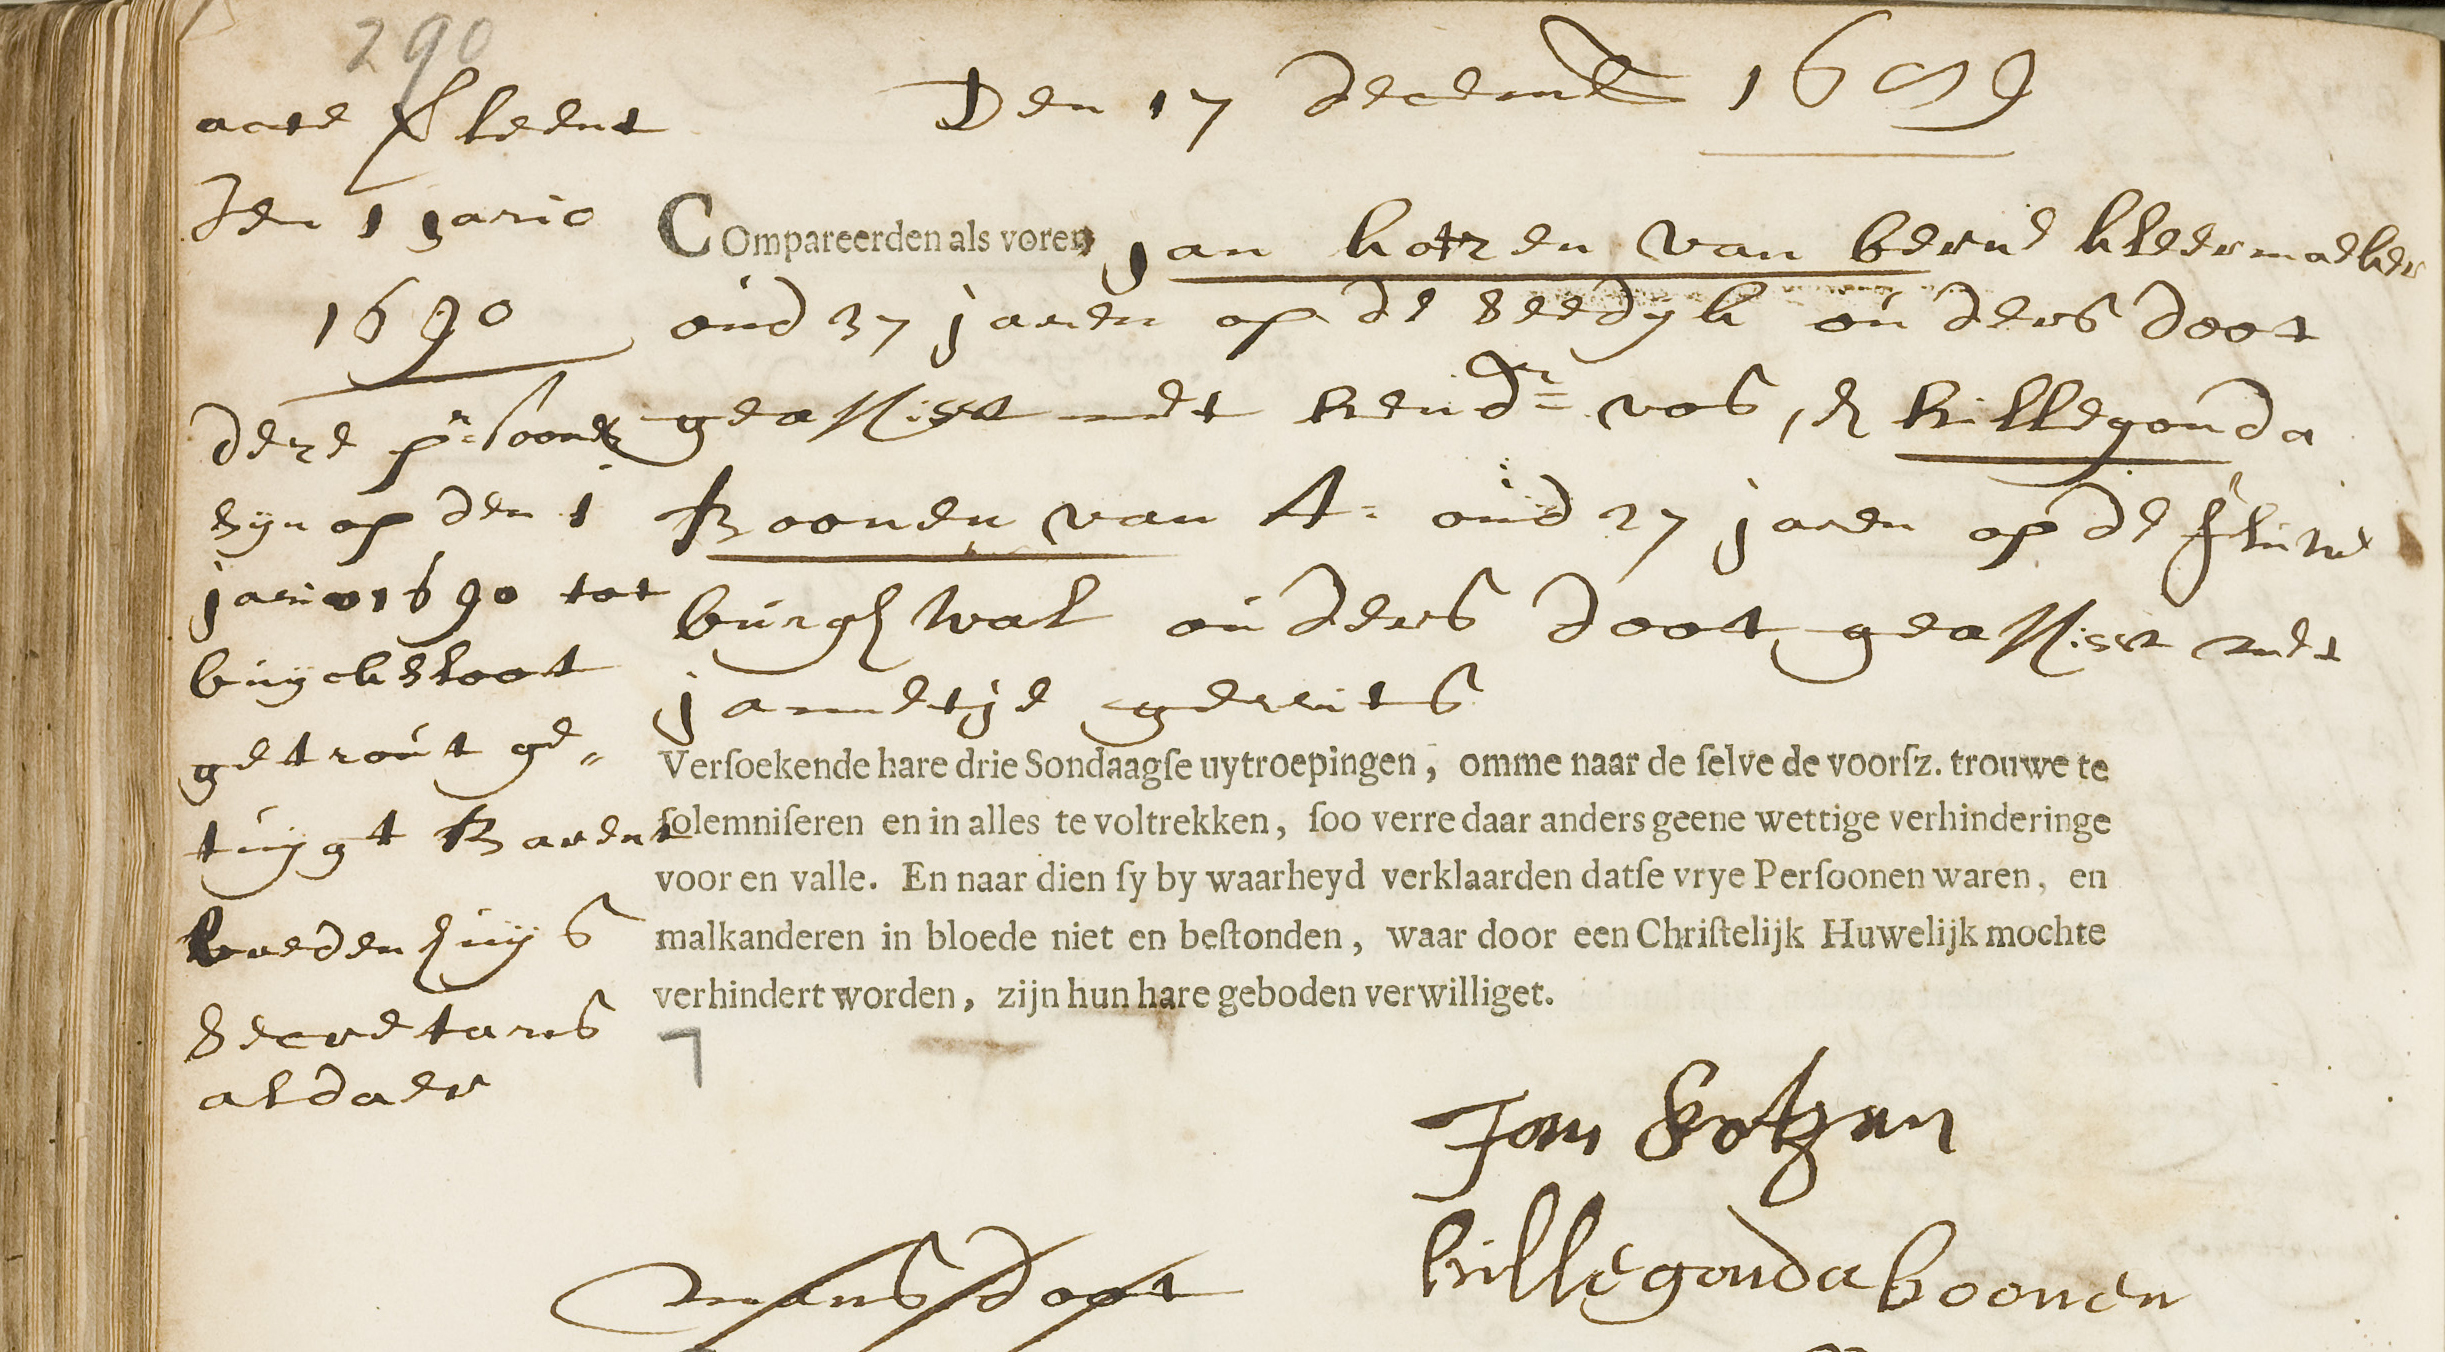 290
Den 17 decemb 1689
acte verleent
den 1 janrio
1690
dese prsoonen
syn op den 1
janrio 1690 tot
buycksloot
getrout ge„
tuygt Barent
breedenhuys
Secretaris
aldaer
Compareerden als voren Jan kotzen van berne kleermaeker
oud 37 jaren op de Seedyk ouders doot
geassisst met hendr vos, en hillegonda
Boonen van A. oud 27 jaren op de fluwe
burghwal ouders doot geassisst met
jannetje gerrits
Verſoekende hare drie Sondaagſe uytroepingen, omme naar de ſelve de voorſz. trouwe te
ſolemniſeren en in alles te voltrekken, ſoo verre daar anders geene wettige verhinderinge
voor en valle. En naar dien ſy by waarheyd verklaarden datſe vrye Perſoonen waren, en
malkanderen in bloede niet en beſtonden, waar door een Chriſtelijk Huwelijk mochte
verhindert worden, zijn hun hare geboden verwilliget.
Jan Kotzen
hillegonda boonen
mans doot